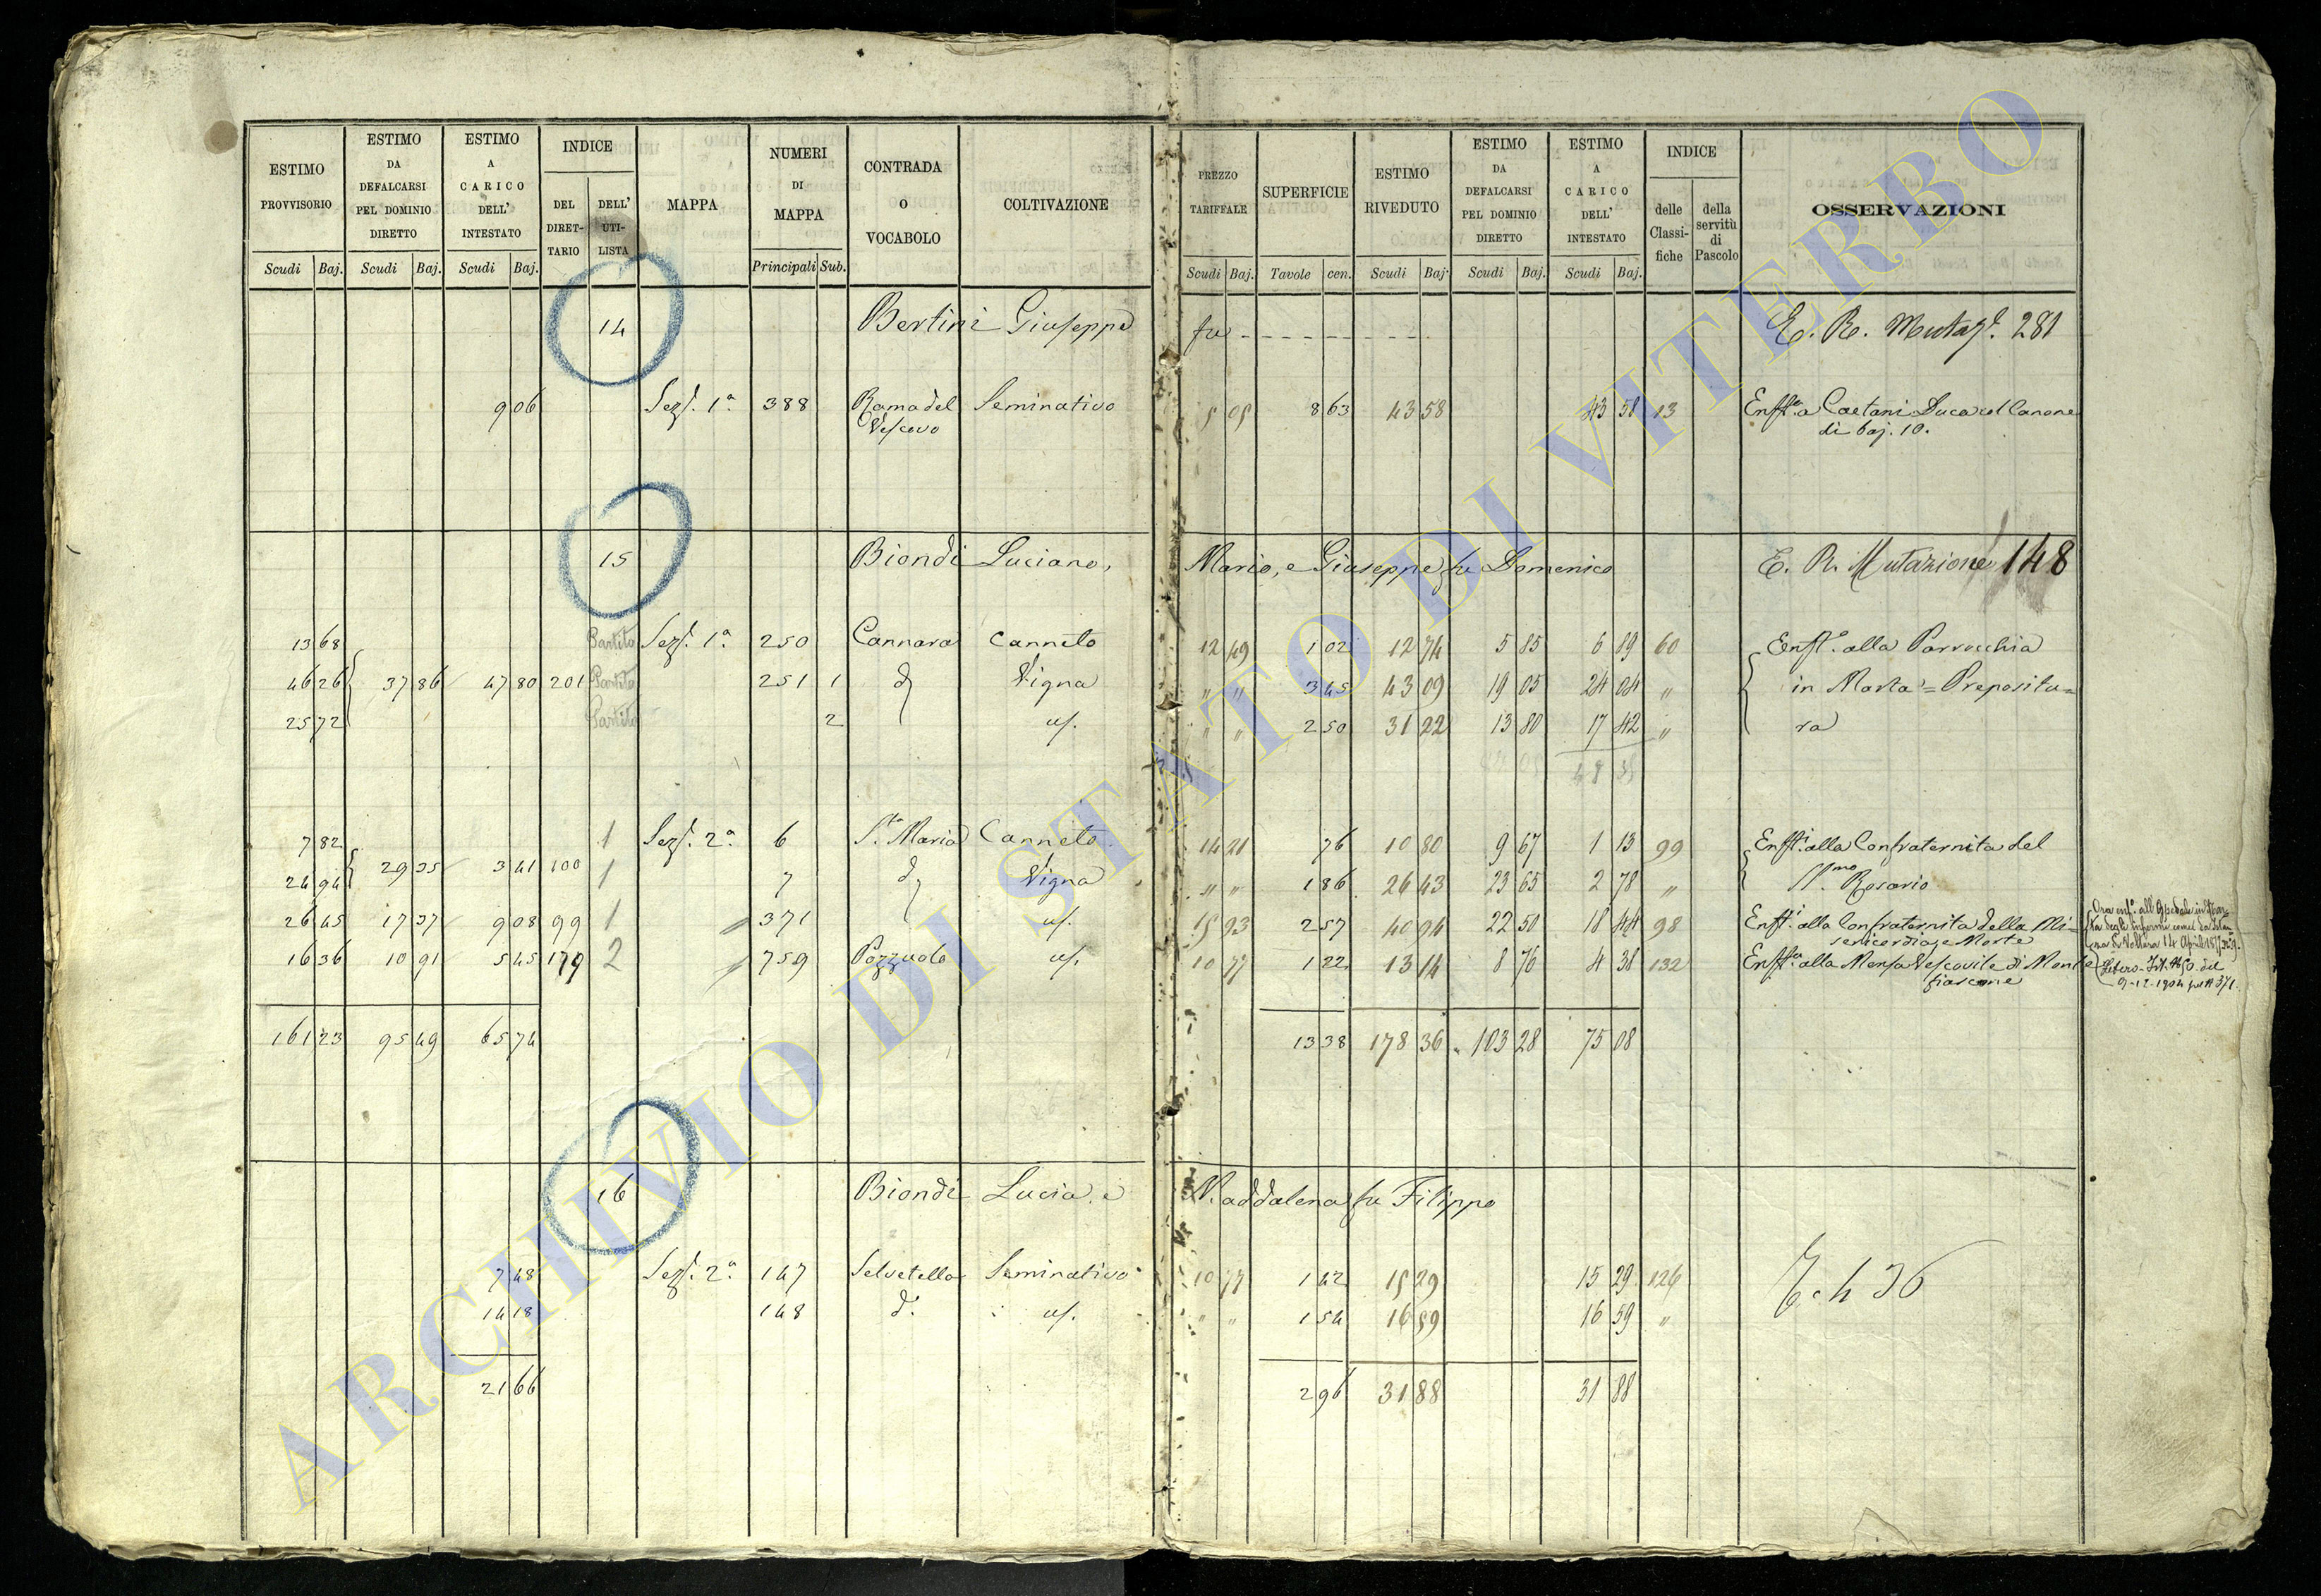 ESTIMO PROVVISORIO
Scudi Baj.
ESTIMO DA DEFALCARSI PEL DOMINIO DIRETTO
Scudi Baj.
ESTIMO A CARICO DELL' INTESTATO
Scudi Baj.
INDICE
DEL DIRET-TARIO
DELL' UTI-LISTA
MAPPA
NUMERI DI MAPPA
Principali Sub.
CONTRADA O VOCABOLO
COLTIVAZIONE
PREZZO TARIFFALE
Scudi Baj.
SUPERFICIE
Tavole cen.
ESTIMO RIVEDUTO
Scudi Baj.
ESTIMO DA DEFALCARSI PEL DOMINIO DIRETTO
Scudi Baj.
ESTIMO A CARICO DELL' INTESTATO
Scudi Baj.
INDICE
delle Classi-fiche
della servitù di Pascolo
OSSERVAZIONI
14 Bertini Giuseppe fu - - - - - - - - - - E. R. Mutaz. 281
9 06 Sez. 1a. 388 Rama del Vescovo Seminativo 5 05 8 63 43 58 43 58 13 Enfta a Caetani Duca col Canone
di baj. 10.
15 Biondi Luciano, Mario, e Giuseppe fu Domenico E. R. Mutazione 148
13 68 Partito Sez. 1a. 250 Cannara Canneto 12 49 1 02 12 74 5 85 6 89 60 Enft. alla Parrocchia
46 26 37 86 47 80 201 Partito 251 1 d. Vigna " " 3 45 43 09 19 05 24 04 " in Marta = Prepositu=
25 72 Partito 2 us. " " 2 50 31 22 13 80 17 42 " ra
48 35
7 82 1 Sez. 2a. 6 S.ta Maria Canneto 14 21 76 10 80 9 67 1 13 99 Enft. alla Confraternita del
24 94 29 35 3 41 100 1 7 d. Vigna " " 1 86 26 43 23 65 2 78 " SS.mo Rosario
26 45 17 37 9 08 99 1 371 us. 15 93 2 57 40 94 22 50 18 44 98 Enft. alla Confraternita della Mi-
sericordia, e Morte
16 36 10 91 5 45 179 2 759 Pozzuolo us. 10 77 1 22 13 14 8 76 4 38 132 Enfta. alla Mensa Vescovile di Monte
fiascone
9-12-1904
161 23 95 49 65 74 13 38 178 36 103 28 75 08
16 Biondi Lucia, e Maddalena fu Filippo
7 48 Sez. 2a. 147 Selvetella Seminativo 10 77 1 42 15 29 15 29 126
14 18 148 d. us. " " 1 54 16 59 16 59 "
21 66 2 96 31 88 31 88
ARCHIVIO DI STATO DI VITERBO